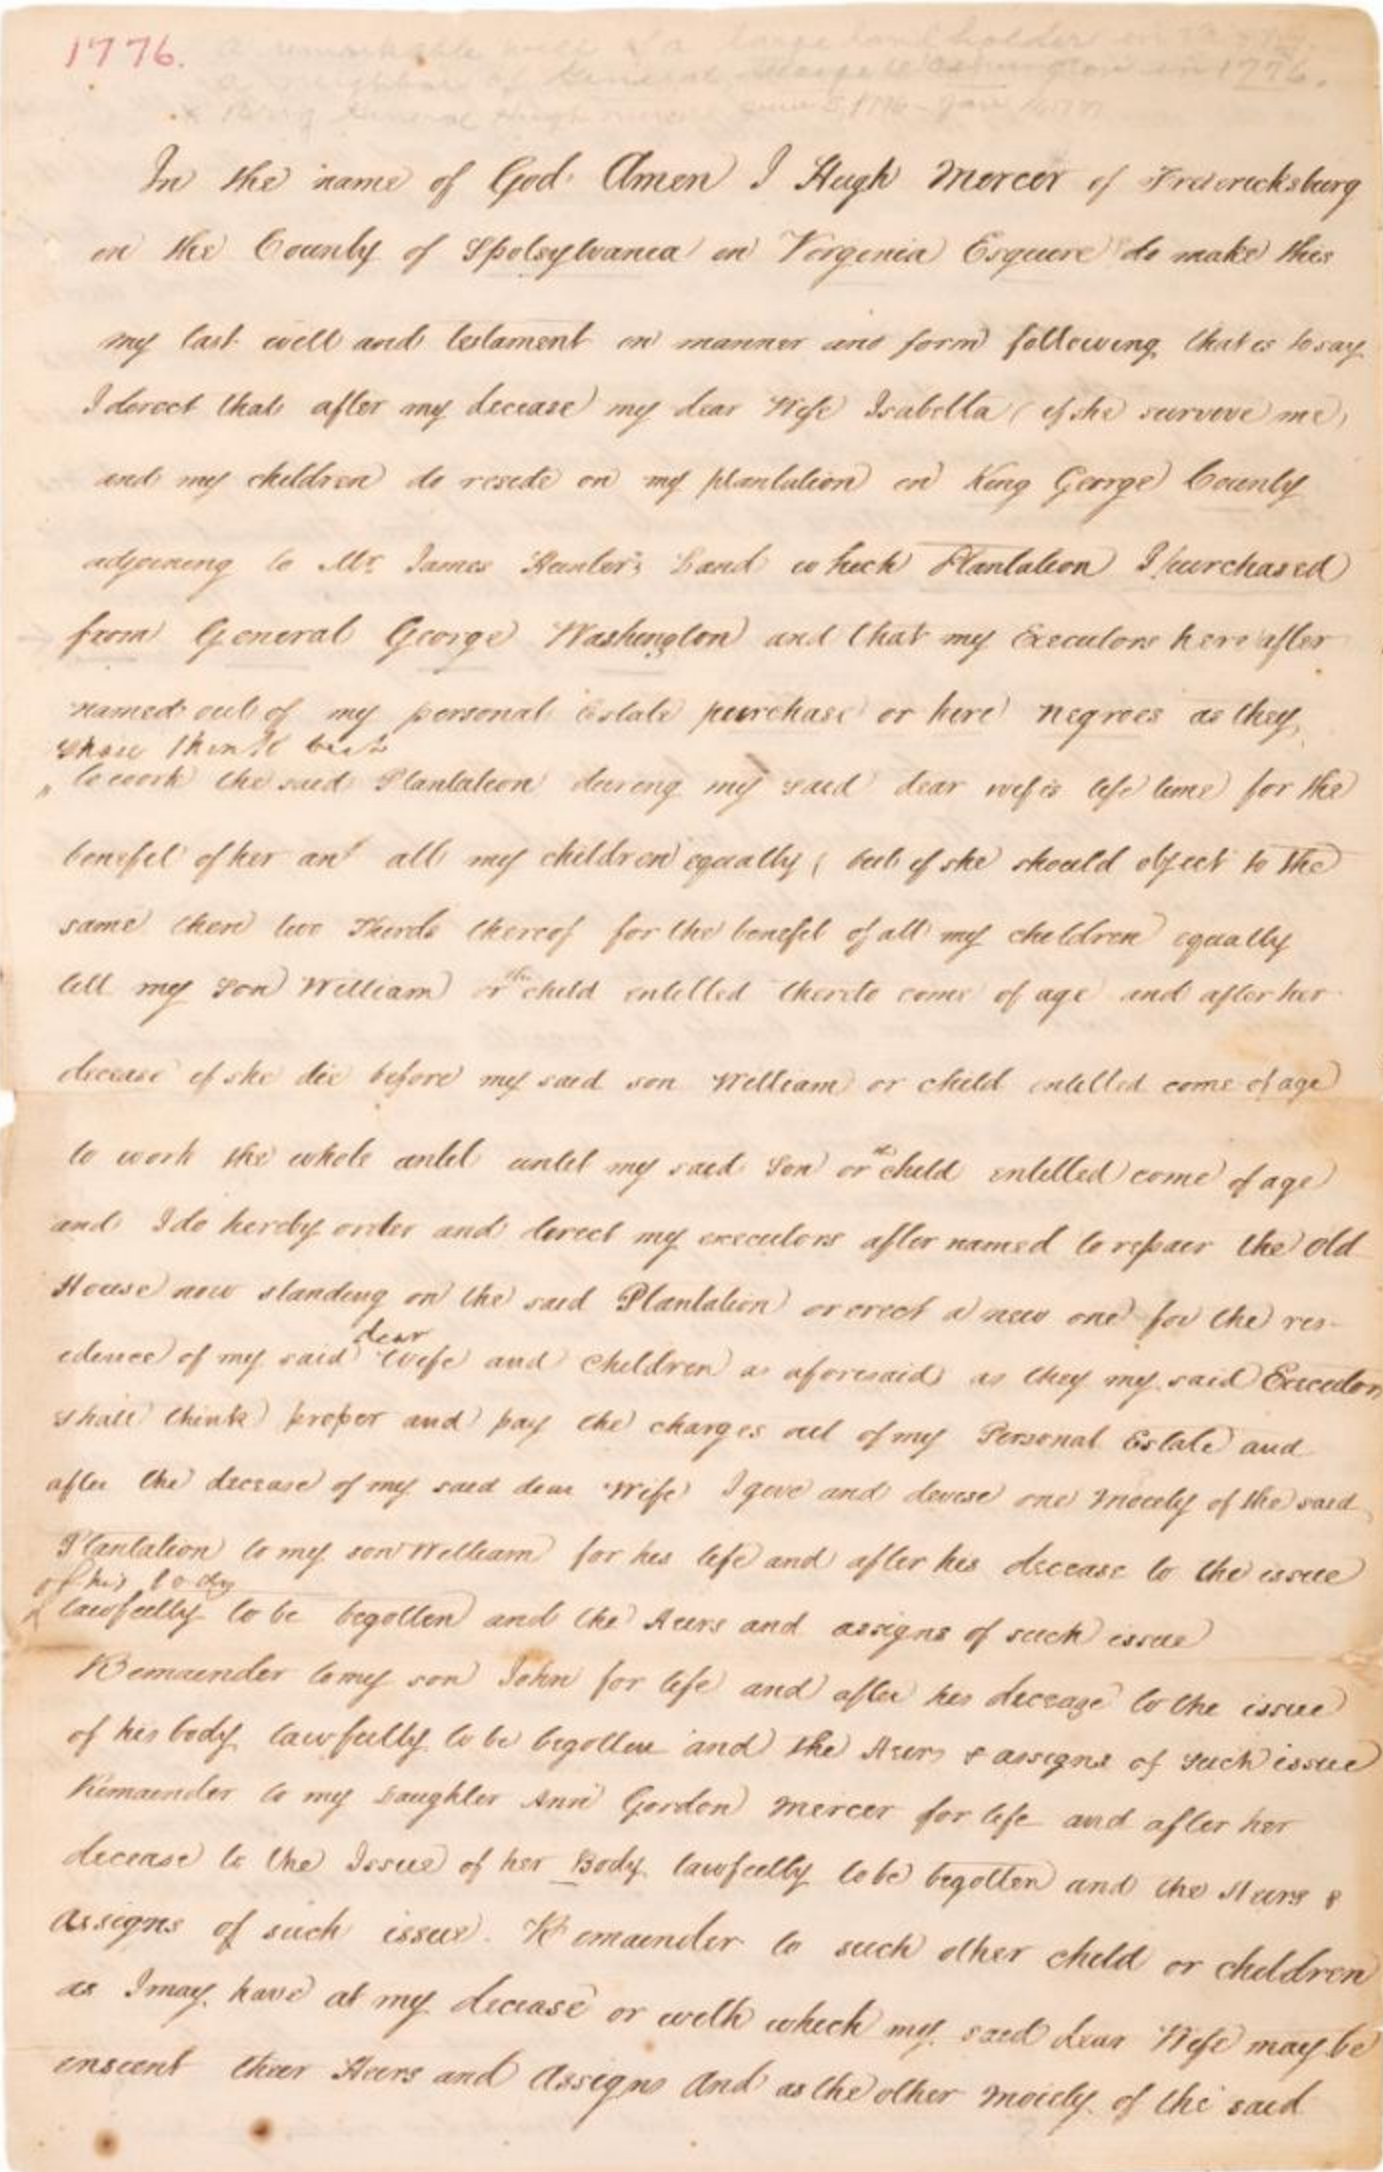 1776.
a remarkable will of a large land holder in
a neighbor of General George Washington in 1776.
* Brig General Hugh Mercer June 5, 1776 - Jan
In the name of God Amen I Hugh Mercer of Fredericksburg
in the County of Spotsylvania in Virginia Esquire do make this
my last will and testament in manner and form following that is to say
I direct that after my decease my dear Wife Isabella (if she survive me)
and my children do reside on my plantation in King George County
adjoining to Mr. James Hunter's Land which Plantation I purchased
from General George Washington and that my Executors here after
named out of my personal Estate purchase or hire negroes as they
shall think best
to work the said Plantation during my said dear wifes life time for the
benefit of her and all my children equally ( but if she should object to the
same then two Thirds thereof for the benefit of all my children equally
till my Son William or child entitled thereto come of age and after her
the
decease if she die before my said son William or child entitled come of age
to work the whole until until my said Son or the child entitled come of age
and I do hereby order and direct my executors after named to repair the old
House now standing on the said Plantation or erect a new one for the res-
dear
idence of my said Wife and children as aforesaid as they my said Executors
shall think proper and pay the charges out of my Personal Estate and
after the decease of my said dear Wife I give and devise one moiety of the said
Plantation to my son William for his life and after his decease to the issue
of his body
lawfully to be begotten and the Heirs and assigns of such issue
Remainder to my son John for life and after his decease to the issue
of his body lawfully to be begotten and the Heirs & assigns of such issue
Remainder to my Daughter Ann Gordon Mercer for life and after her
decease to the Issue of her Body lawfully to be begotten and the Heirs &
Assigns of such issue. Remainder to such other child or children
as I may have at my decease or with which my said dear Wife may be
enscient their Heirs and Assigns And as the other moiety of the said